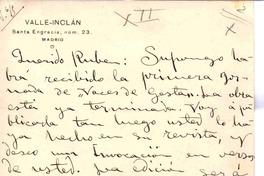 XII
VALLE-INCLÁN
Santa Engracia, núm. 23.
MADRID
Querido Ruben: Supongo ha-
brá recibido la primera Jor-
nada de "Voces de Gesta". La obra
está ya terminada. Voy á pu-
blicarla tan luego usted lo ha-
ya hecho en su revista, y
deseo una Invocación en versos
de usted. La edición será